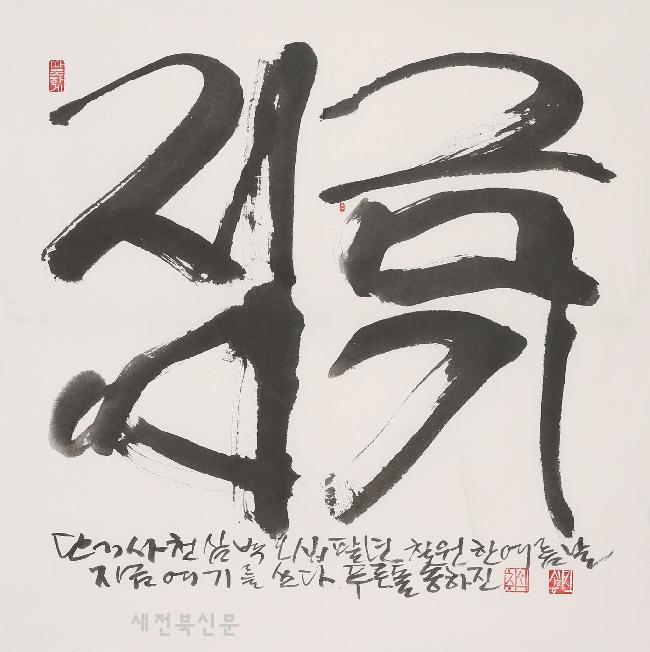 지금
여기
단기 사천삼백오십팔년 칠월 한여름날
지금 여기를 쓰다 푸른돌 송하진
새전북신문